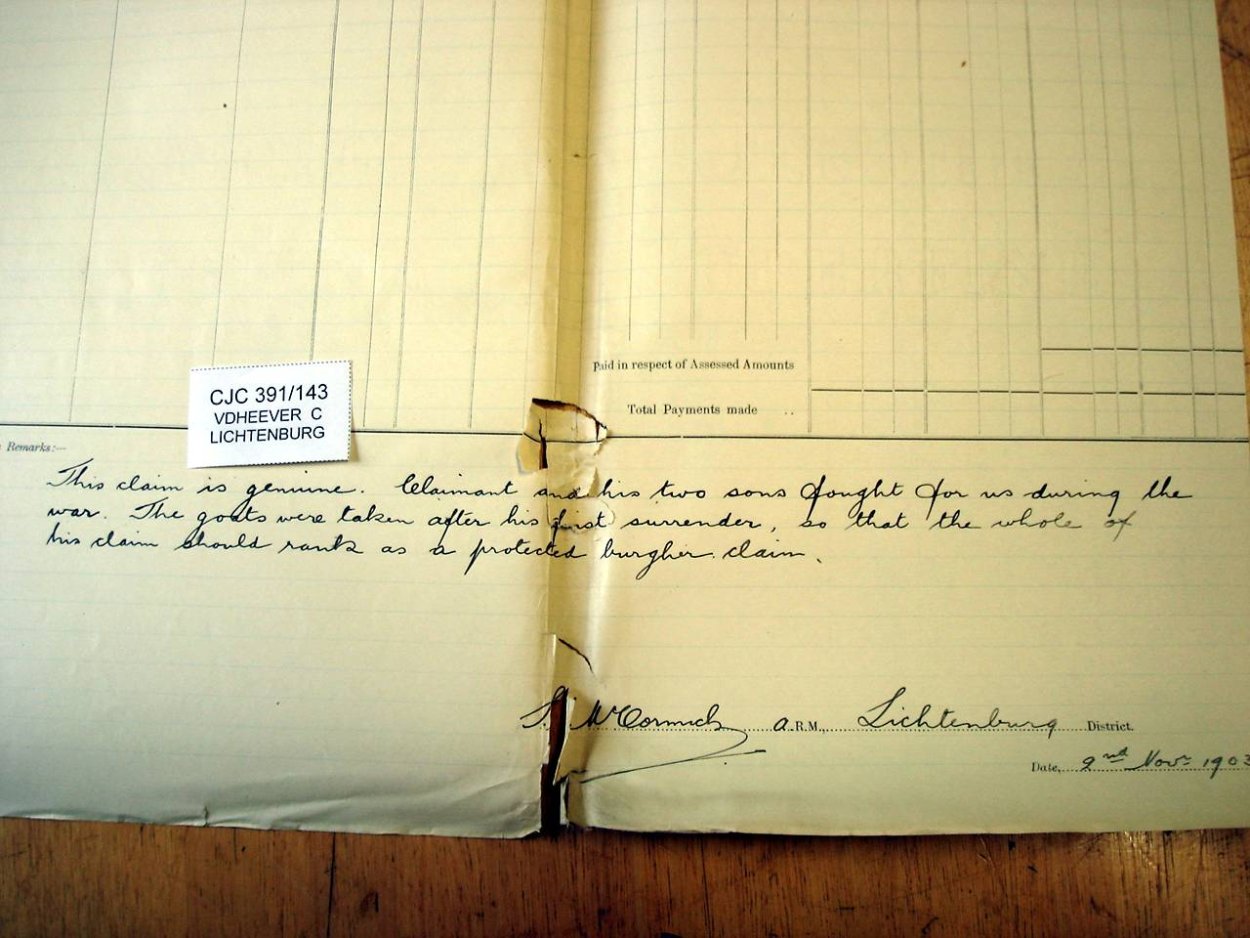 Paid in respect of Assessed Amounts
Total Payments made ..
CJC 391/143
VDHEEVER C
LICHTENBURG
Remarks:—
This claim is genuine. Claimant and his two sons fought for us during the
war. The goats were taken after his first surrender, so that the whole of
his claim should rank as a protected burgher claim.
McCormick A.R.M., Lichtenburg District.
Date, 2nd Novr 1903